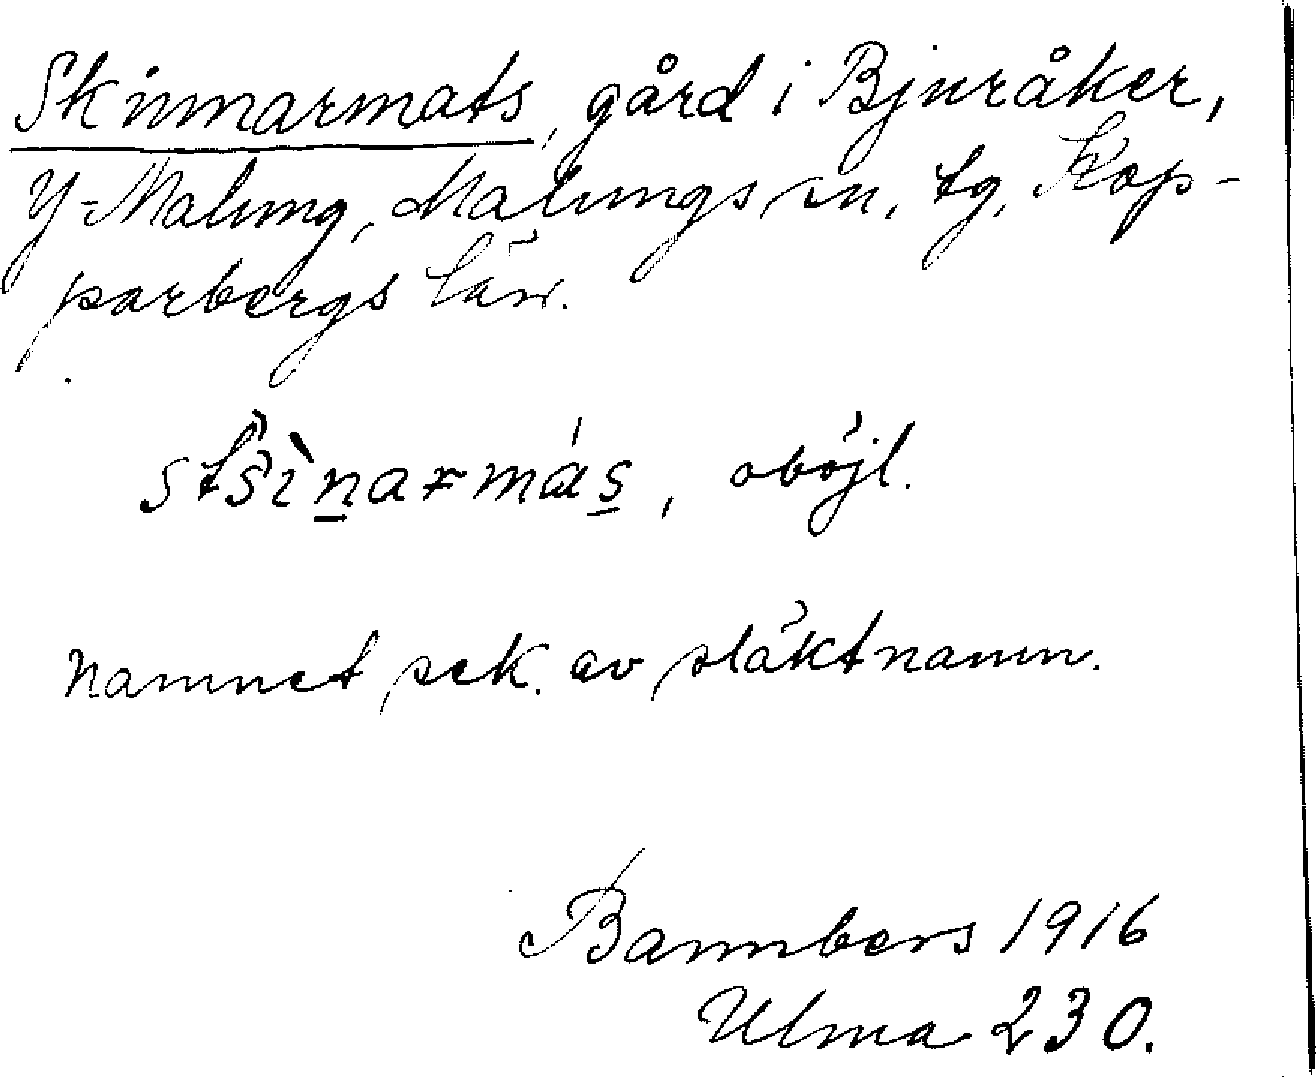 Skinnarmats, gård i Bjuråker,
Y-Malung, Malungs sn, tg, Kop-
parbergs län.
stšìnarmás, oböjl.
namnet sek. av släktnamn.
Bannbers 1916
Ulma 230.